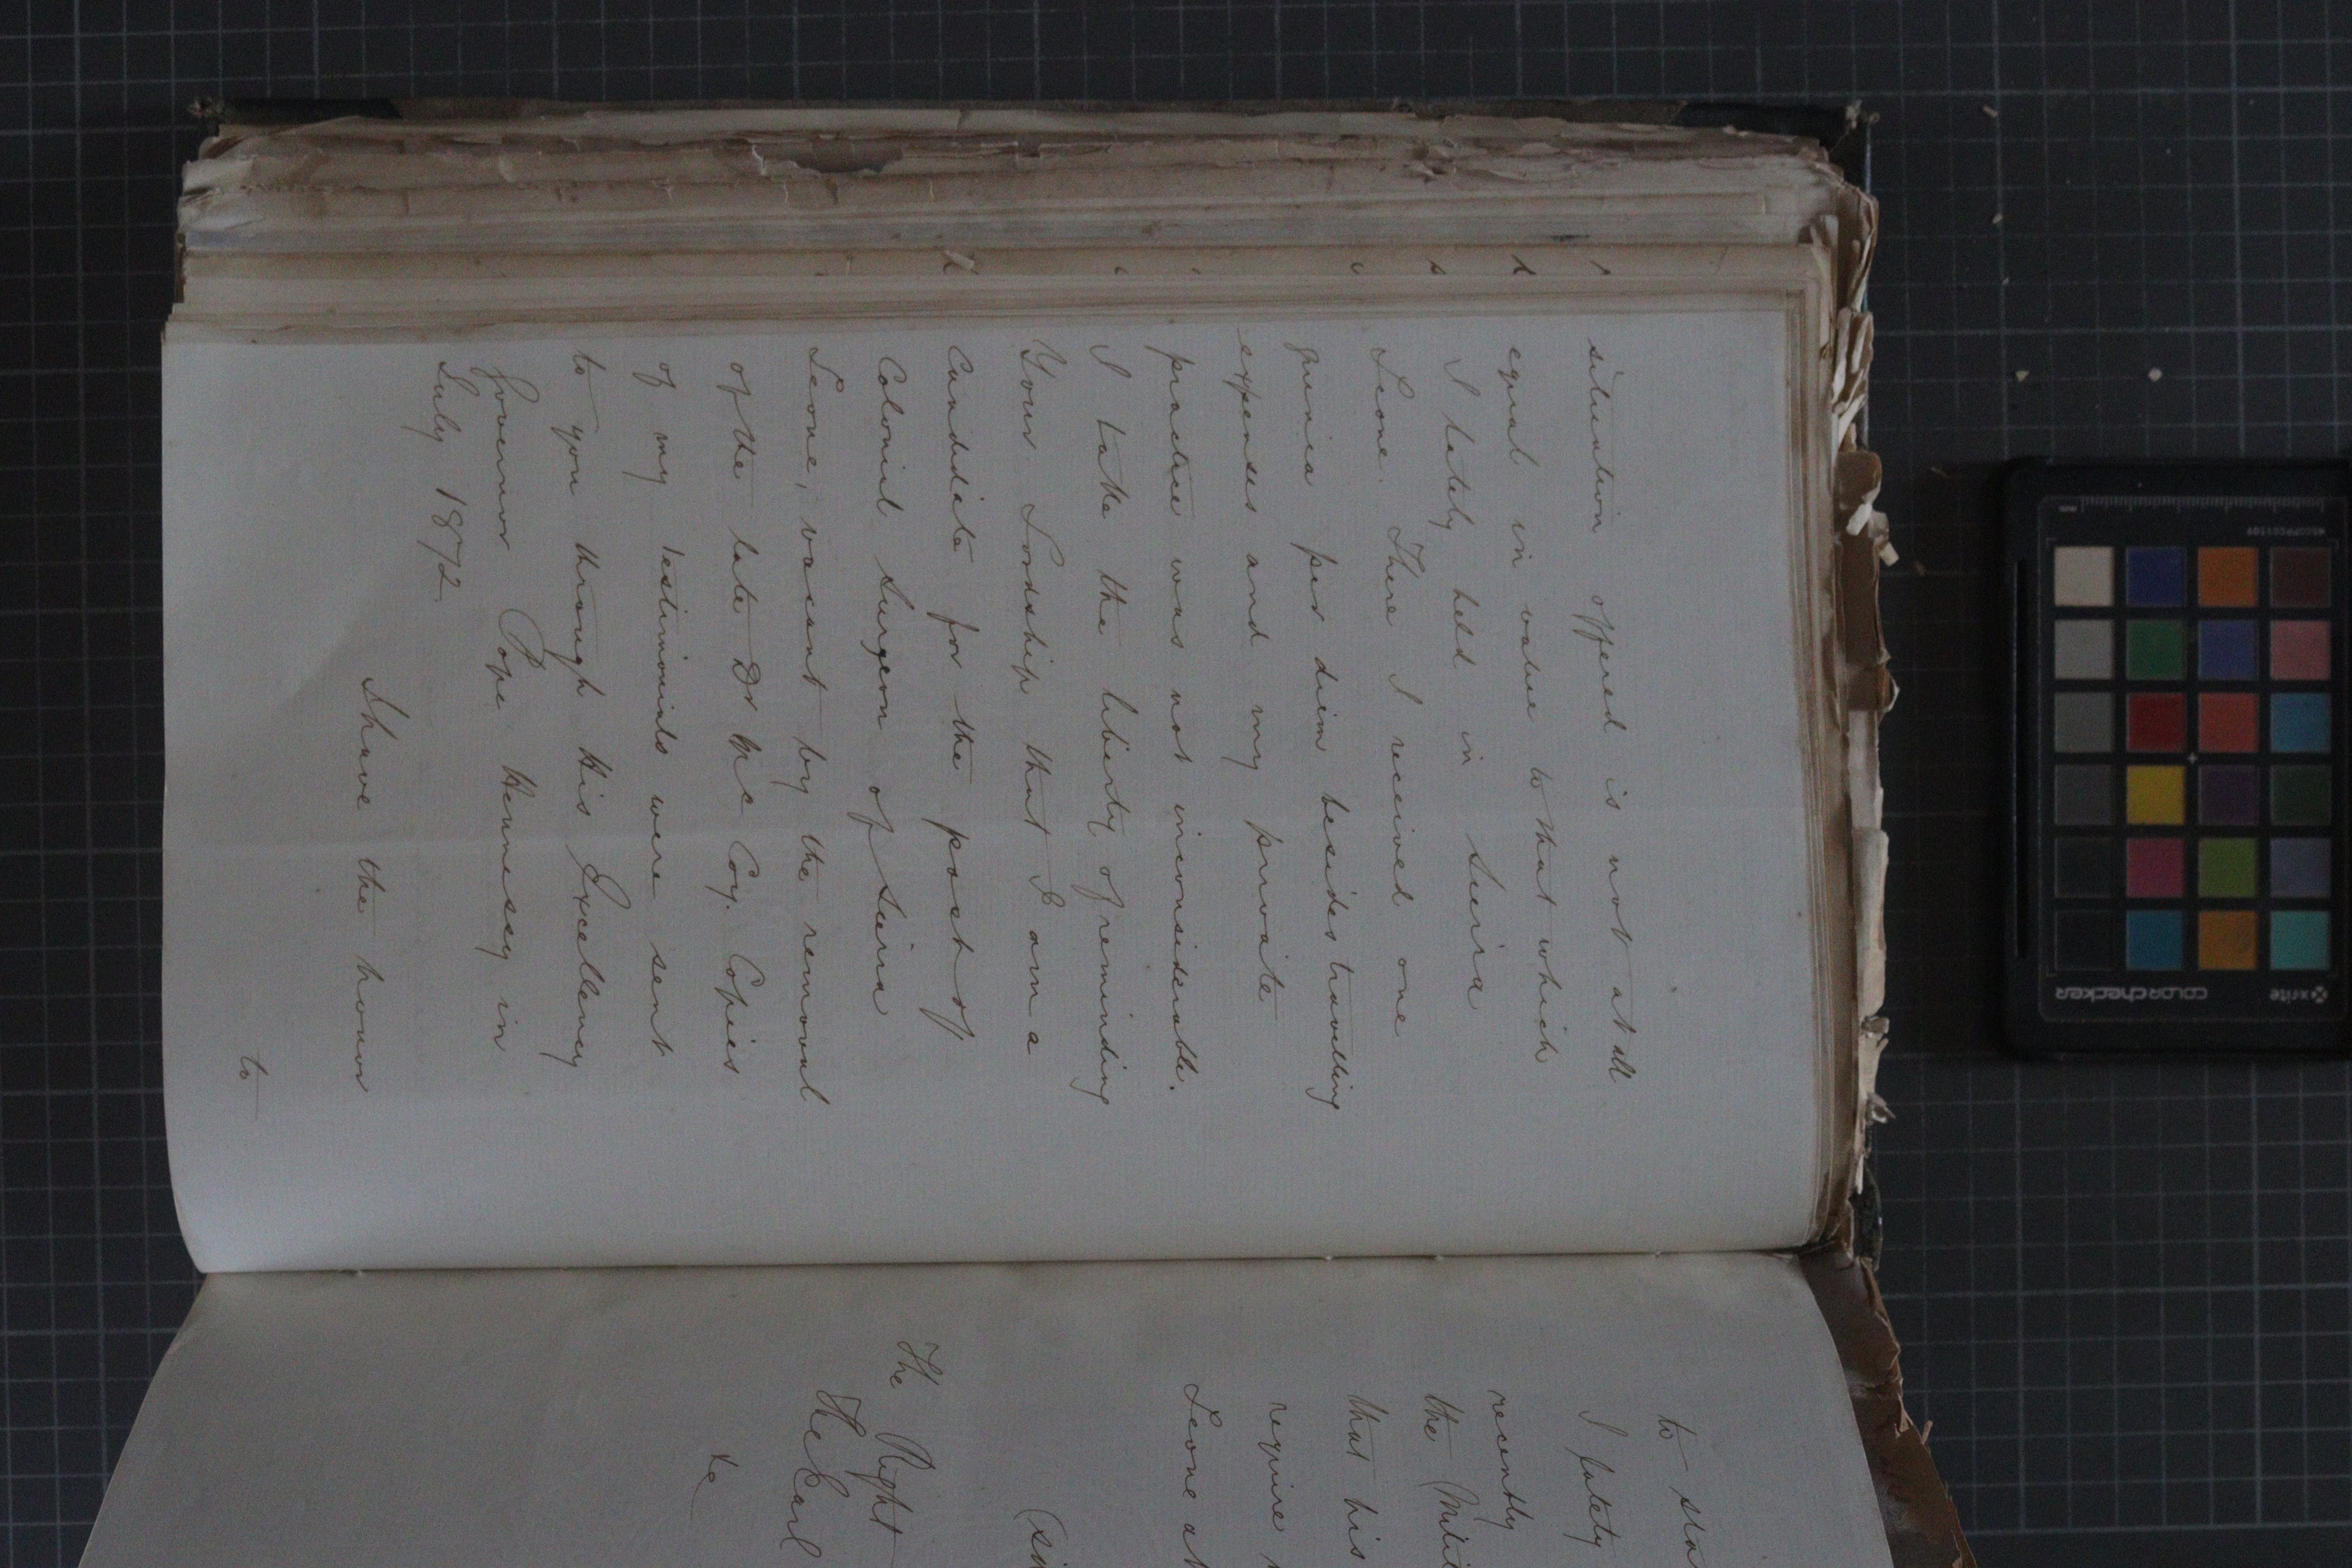 situation offered is not at all
equal in value to that which
I lately held in Seira
Leone. There I received one
guinia per diem besides travelling
expenses and my private
practice was not inconsiderable.
I take the liberty of reminding
Your Lordship that I am a
Candidate for the post of
Colonial Surgeon of Sierra
Leone, vacant by the removal
of the late Dr Mc Coy. Copies
of my testimonials were sent
to you through His Excellency
Governor Pope Hennessy in
July 1872.
I have the honor
to
to sta
I lately
recently
the Milit
that his
require
Leone at
(si
The Right
The Earl
&c
colorchecker
x-rite